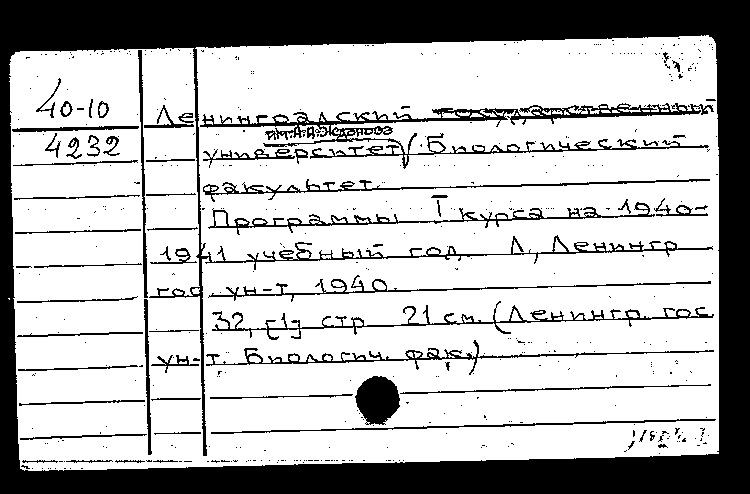 40-10
4232
Ленинградский государственный
им. А.А. Жданова
университет. Биологический
факультет.
Программы I курса на 1940-
1941 учебный год. Л., Ленингр
гос. ун-т, 1940.
32, [1] стр 21 см. (Ленингр. гос
ун-т. Биологич. фак.)